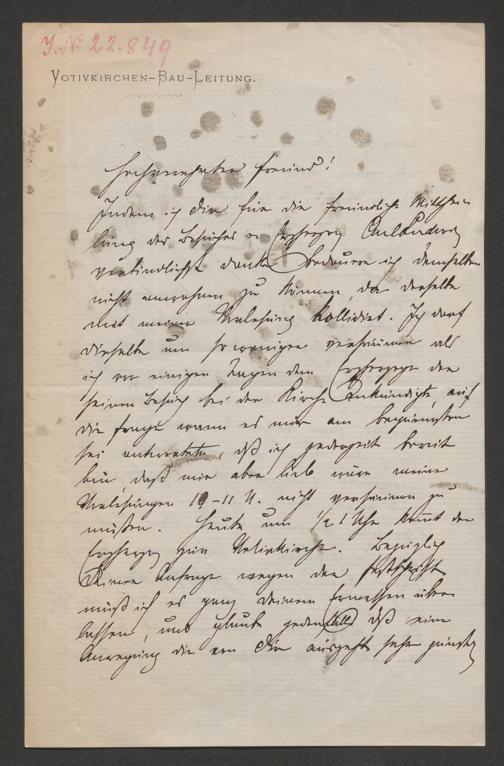 J. N. 22.849
VOTIVKIRCHEN-BAU-LEITUNG.
Hochverehrter Freund!
Indem ich Dir für die freundliche Mittheilung
des Besuches Erzherzog Carl Ludwig
verbindlichst danke bedauere ich demselben
nicht zu können, da derselbe
mit meiner Vorlesung kollidirt. Ich darf
dieselbe um so weniger versäumen als
ich vor einigen Tagen dem Erzherzoge der
seinen Besuch bei der Kirche ankündigte, auf
die Frage wann es mir am bequemsten
sei antwortete, daß ich jederzeit bereit
bin, daß mir aber lieb wäre meine
Vorlesungen 10-11 U. nicht versäumen zu
müssen. Heute um 1/2 1 Uhr kommt der
Erzherzog zur Votivkirche. Bezüglich
Deiner Anfrage wegen der Festschrift
muß ich es ganz Deinem Ermessen über
lassen, und glaube jedenfalls daß eine
Anregung die von Dir ausgeht sehr